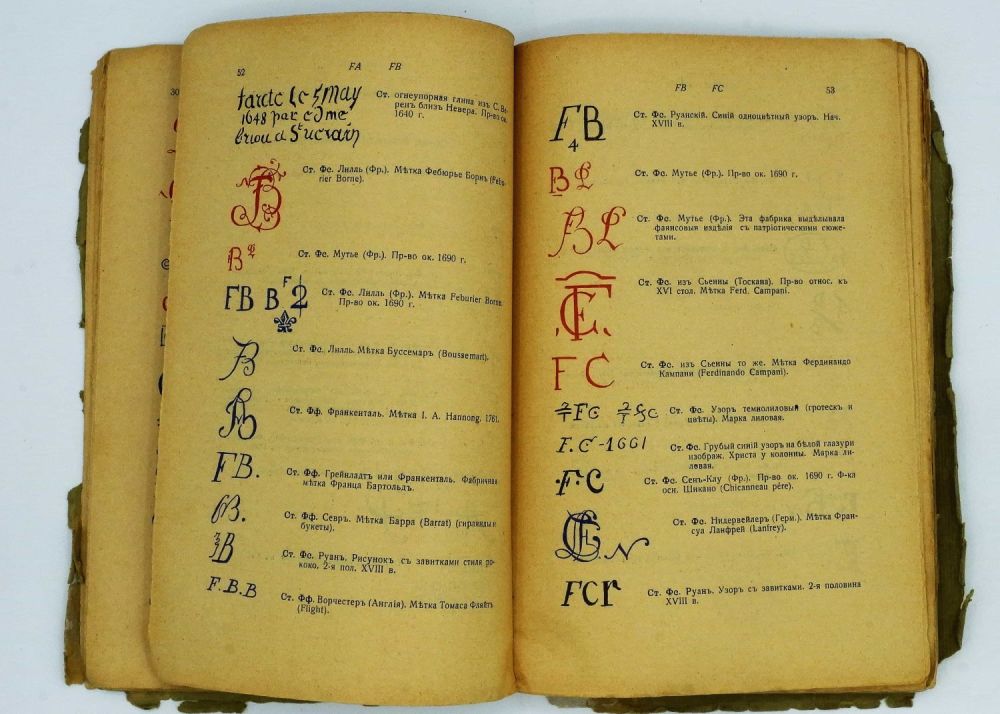 30
52
FA FB
tarcte Le 5 May
1648 par edme
briou a St verain
Ст. огнеупорная глина изъ С. Ве-
ренъ близъ Невера. Пр-во ок.
1640 г.
FB
Ст. Фс. Лилль (Фр.). Мѣтка Фебюрье Борнъ (Febu-
rier Borne).
B L
Ст. Фс. Мутье (Фр.). Пр-во ок. 1690 г.
FB B F 2
Ст. Фс. Лилль (Фр.). Мѣтка Feburier Borne.
Пр-во ок. 1690 г.
B
Ст. Фс. Лилль. Мѣтка Буссемаръ (Boussemart).
FB
Ст. Фф. Франкенталь. Мѣтка I. A. Hannong. 1761.
FB.
Ст. Фф. Грейнладтъ или Франкенталь. Фабричная
мѣтка Франца Бартольдъ.
B.
Ст. Фф. Севръ. Мѣтка Барра (Barrat) (гирлянды и
букеты).
B
Ст. Фс. Руанъ. Рисунокъ съ завитками стиля ро-
коко. 2-я пол. XVIII в.
F.B.B
Ст. Фф. Ворчестеръ (Англія). Мѣтка Томаса Фляйтъ
(Flight).
FB FC
53
FB
4
Ст. Фс. Руанскій. Синій одноцвѣтный узоръ. Нач.
XVIII в.
B L
Ст. Фс. Мутье (Фр.). Пр-во ок. 1690 г.
B L
Ст. Фс. Мутье (Фр.). Эта фабрика выдѣлывала
фаянсовыя издѣлія съ патріотическими сюже-
тами.
FC
Ст. Фс. изъ Сьенны (Тоскана). Пр-во относ. къ
XVI стол. Мѣтка Ferd. Campani.
FC
Ст. Фс. изъ Сьенны то же. Мѣтка Фердинандо
Кампани (Ferdinando Campani).
2/1 FC 2/1 FC
Ст. Фс. Узоръ темнолиловый (гротескъ и
цвѣты). Марка лиловая.
F.C-1661
Ст. Фс. Грубый синій узоръ на бѣлой глазури
изображ. Христа у колонны. Марка ли-
ловая.
.F.C
Ст. Фс. Сенъ-Клу (Фр.). Пр-во ок. 1690 г. Ф-ка
осн. Шикано (Chicanneau père).
FC. N
Ст. Фс. Нидервейлеръ (Герм.). Мѣтка Фран-
суа Ланфрей (Lanfrey).
FCr
Ст. Фс. Руанъ. Узоръ съ завитками. 2-я половина
XVIII в.